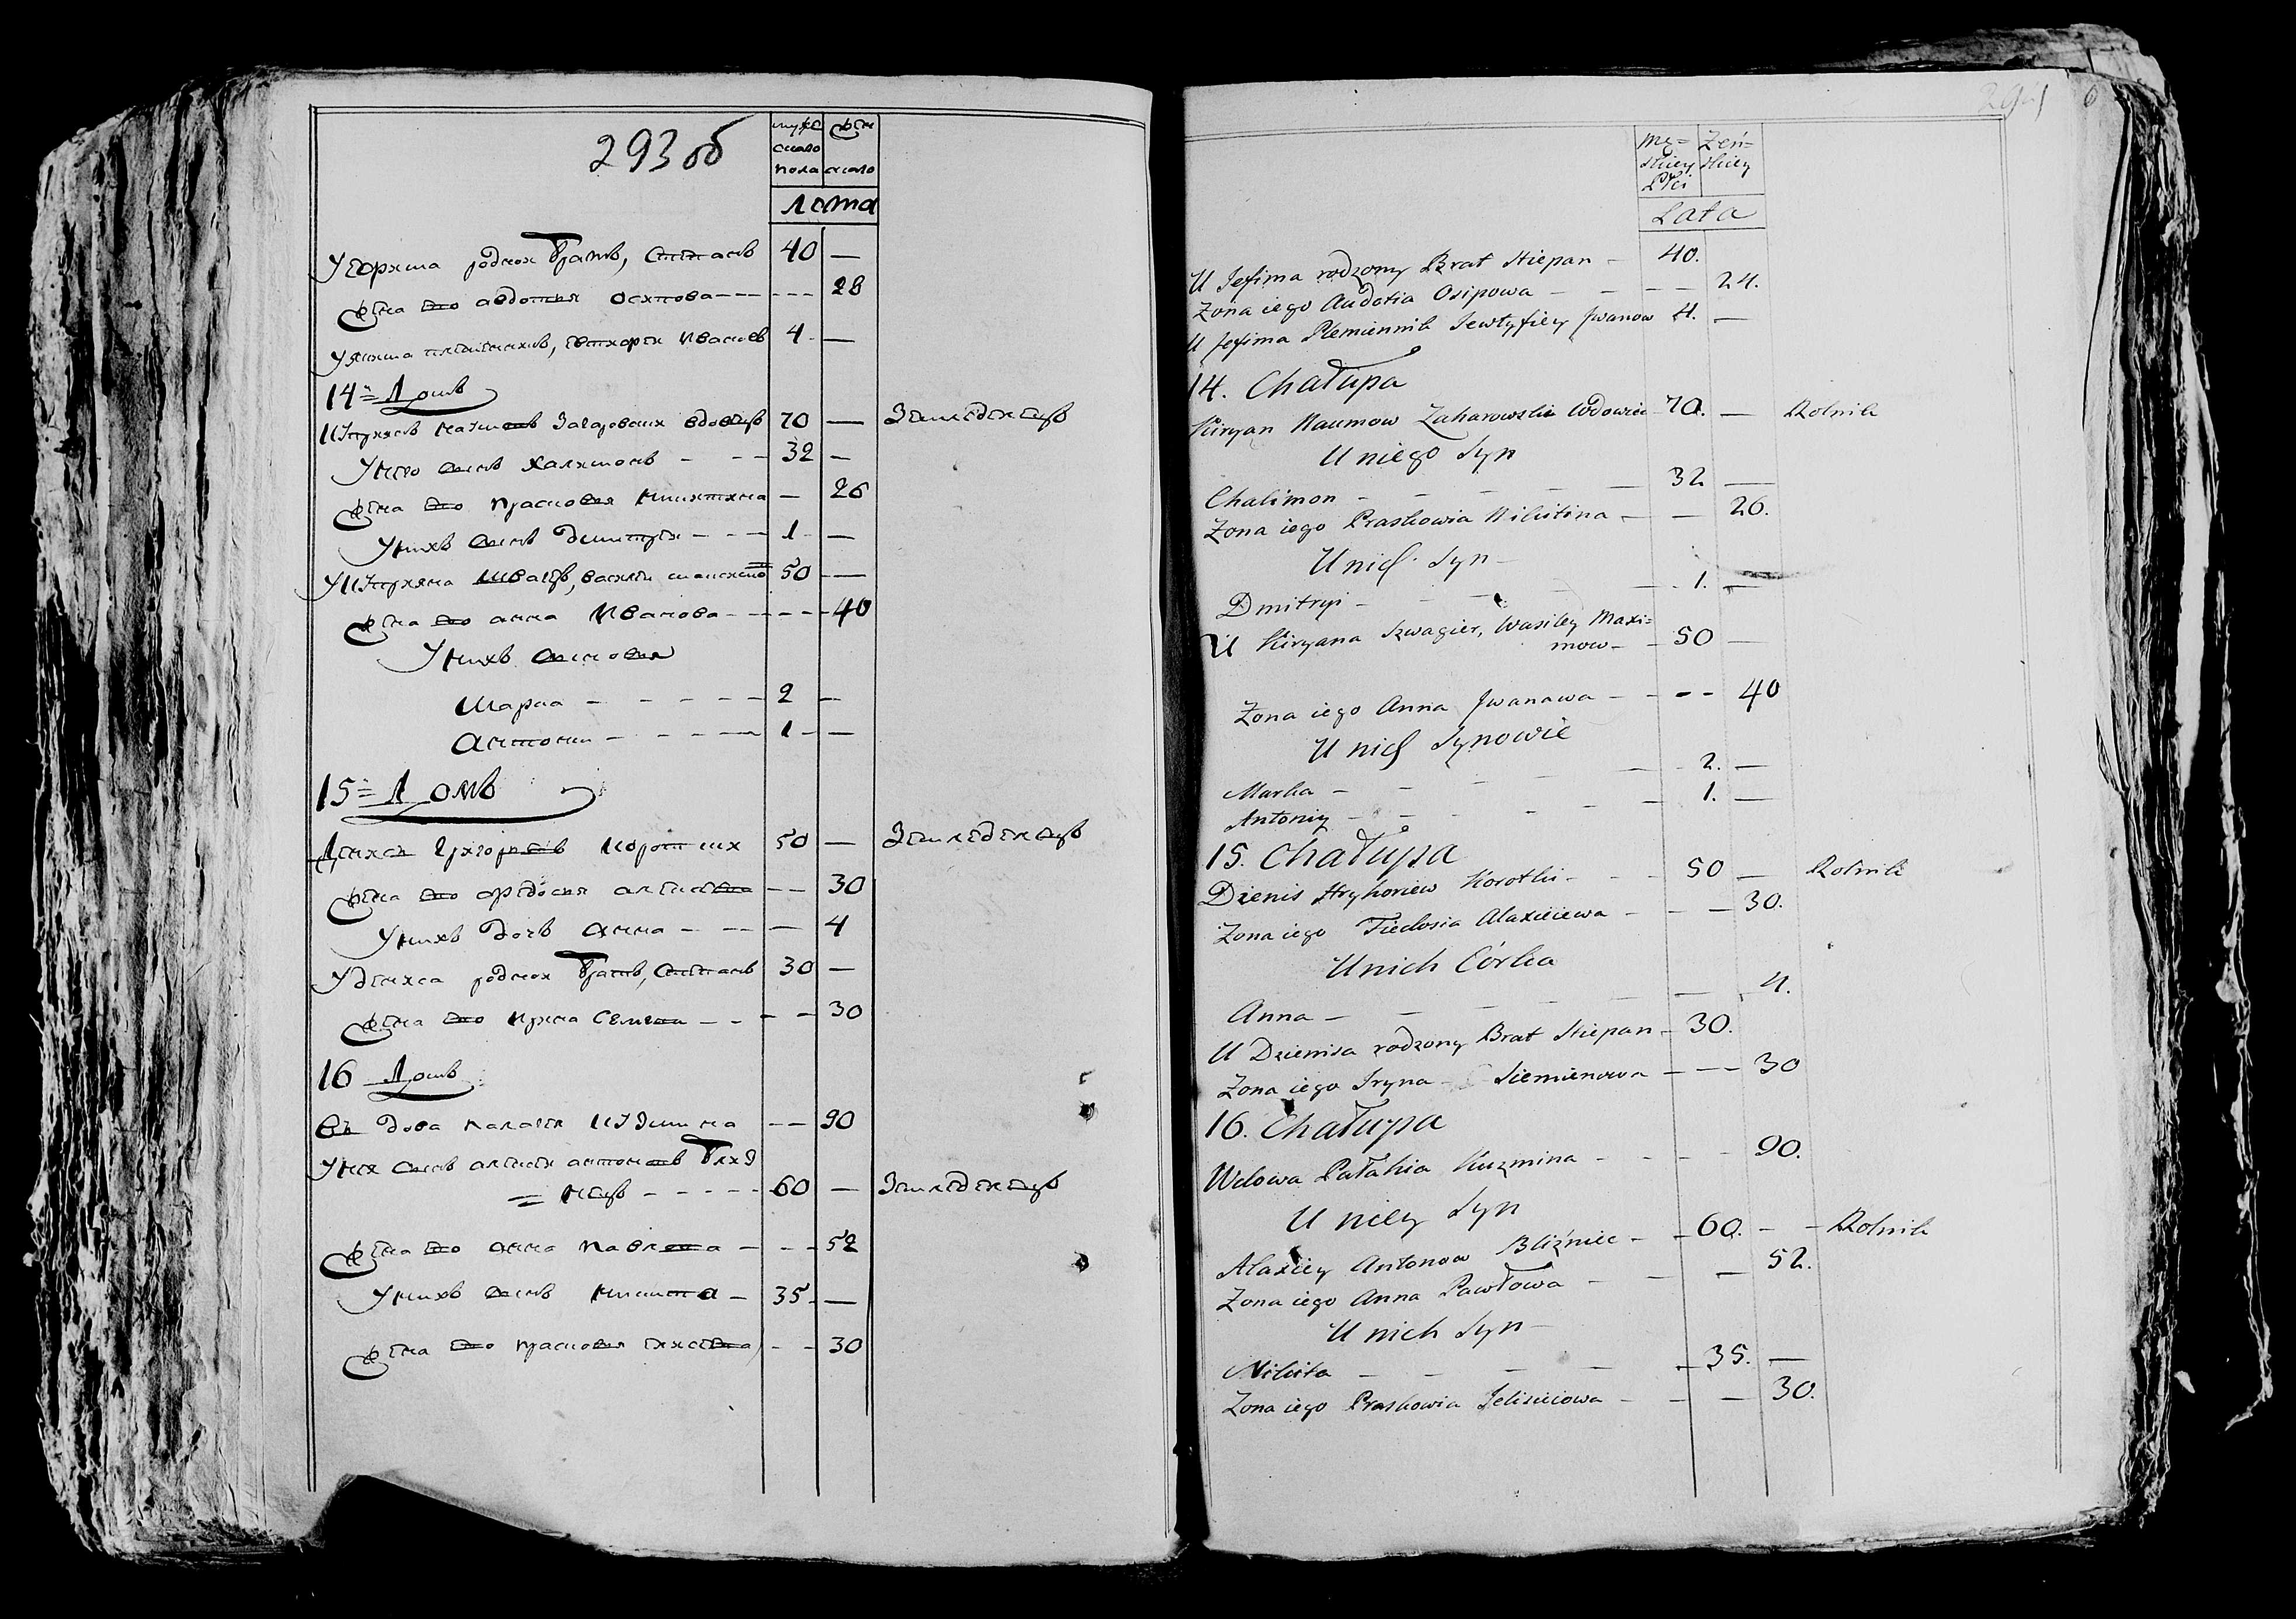 293 об
мужс
скаго
пола
жен
скаго
лета
У Ефима родной Братъ, Степанъ 40 —
жена его авдотия осипова — — — 28
У ефима племенникъ, евтифеи Иванов 4 —
14 = Домъ
Кирянъ наумовъ Захаровски вдовецъ 70 — Земледелецъ
У него сынъ халимонъ — — 32 —
жена его прасковия никитина — 26
У нихъ сынъ дмитреи — — — 1 — —
У Киряна швагеръ, василеи максимов 50 —
жена его анна Иванова — — — 40
У нихъ сыновия
Марка — — — — — 2 —
антони — — — — — 1 — —
15 = Домъ
Денисъ григориевъ Коротки 50 — Земледелецъ
жена его федосия алексеева — — 30
У нихъ дочь анна — — — 4
У дениса родной Братъ, Степанъ 30 —
жена его ирина Семена — — — — 30
16 Домъ
вдова палагея Кузмина — — 90
У неи сынъ алексеи антоновъ Близ
= нецъ — — — — 60 — Земледелецъ
жена его анна павлова — — — 52
У нихъ сынъ никита — 35 —
жена его прасковия елисеева — — 30
Mę= Żeń=
skiey skiey
Płci
Lata
U Jefima rodzony Brat Stiepan — 40.
Zona iego Audotia Osipowa — — — — 24.
U Jefima Plemiennik Jewtyfiey Jwanow 4. —
14. Chałupa
Kiryan Naumow Zaharowski Wdowiec 70. — Rolnik
U niego Syn
Chalimon — — — — — 32 —
Zona iego Praskowia Nikitina — — 26.
U nich Syn —
Dmitryi — — — — — 1. —
U Kiryana Szwagier, Wasiley Maxi=
mow — — 50 —
Zona iego Anna Jwanawa — — — — 40
U nich Synowie
Marka — — — — — 2. —
Antoniy — — — — — 1. —
15. Chałupa
Dzienis Hryhoriew Korotki — — — 50 — Rolnik
Zona iego Fiedosia Alaxieiewa — — — 30.
Unich Córka
Anna — — — — — — 4.
U Dzienisa rodzony Brat Stiepan — 30.
Zona iego Jryna — Siemienowa — — — 30
16. Chałupa
Wdowa Pałahia Kuzmina — — — — 90.
U niey Syn
Alaxiey Antonow Bliźniec — — 60. — — Rolnik
Zona iego Anna Pawłowa — — — 52.
U nich Syn —
Nikita — — — — — 35. —
Zona iego Praskowia Jelisieiowa — — — 30.